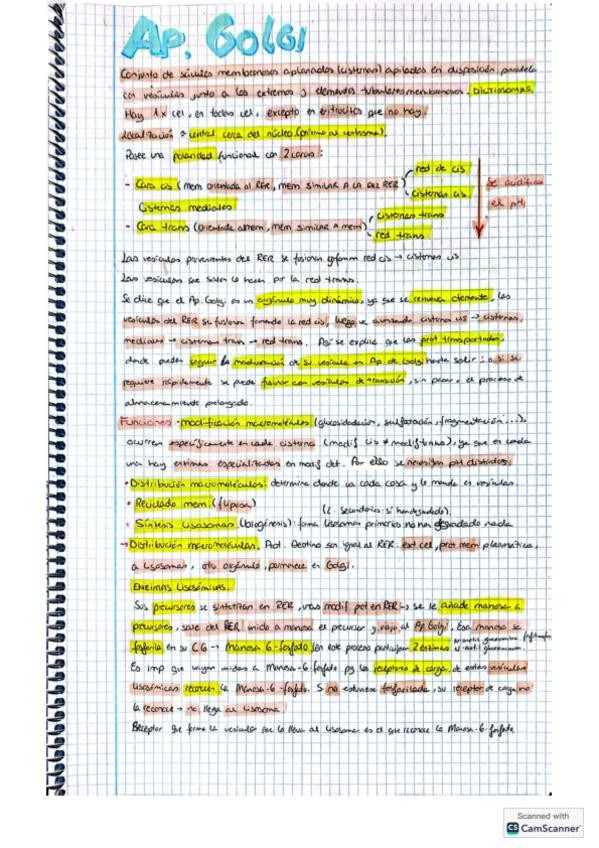 Ap. Golgi
Conjunto de sáculos membranosos aplanados (cisternas) apilados en disposición paralela
con vesículas junto a los extremos y elementos tubulares membranosos. DICTIOSOMAS.
Hay 1 x cel, en todas cel, excepto en eritrocitos que no hay!
localización → central cerca del núcleo (próximo al centrosoma).
Posee una polaridad funcional con 2 caras:
- Cara cis (mem orientada al RER, mem similar a la del RER)
red de cis
cisternas cis
Cisternas mediales
- Cara trans (orientada a mem, mem similar a mem)
cisternas trans
red trans
Se acidifica
el pH
Las vesículas provenientes del RER se fusionan y forman red cis → cisternas cis
Las vesículas que salen lo hacen por la red trans.
Se dice que el Ap. Golgi es un orgánulo muy dinámico, ya que se renueva, las
vesículas del RER se fusionan formando la red cis, luego va avanzando cisternas cis → cisternas
mediales → cisternas trans → red trans. Así se explica que las prot transportadas,
donde pueden seguir la maduración de su vesícula en Ap. de Golgi hasta salir; o si se
requiere rápidamente se puede fusionar con vesículas de transición, sin pasar el proceso de
almacenamiento prolongado.
Funciones · modificación macromoléculas (glucosidación, sulfatación, fragmentación...).
ocurren específicamente en cada cisterna (modif cis ≠ modif trans), ya que en cada
una hay enzimas especializadas en modif det. Por ello se necesitan pH distintos.
· Distribución macromoléculas: determina donde va cada cosa y lo manda en vesículas.
· Reciclado mem. (flipasa)
(L. secundarios: sí han degradado).
· Síntesis lisosomas (biogénesis): forma lisosomas primarios no han degradado nada
→ Distribución macromoléculas. Act. Destino son igual al RER: ext cel, prot mem plasmática,
a lisosomas, otro orgánulo, permanece en Golgi.
ENZIMAS LISOSÓMICAS.
Sus precursores se sintetizan en RER, modif en RER → se le añade manosa a
precursores, sale del RER unido a manosa el precursor y viaja al Ap Golgi. Esa manosa se
fosforila en su CG → Manosa 6-fosfato (en este proceso participan 2 enzimas
Es imp que vayan unidas a Manosa-6-fosfato pq los receptores de carga de estas vesículas
lisosómicas reconocen la Manosa-6-fosfato. Si no estuviese fosforilada, su receptor de carga no
la reconoce → no llega al lisosoma
Receptor que forma la vesícula que lo lleva al lisosoma es el que reconoce la Manosa-6-fosfato
Scanned with
CS CamScanner